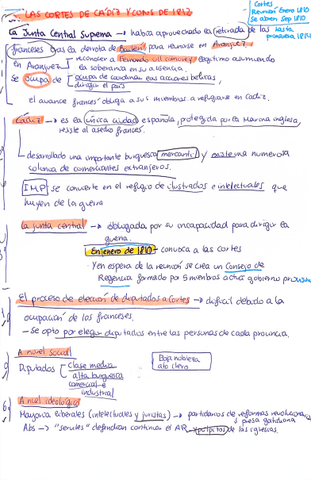 LAS CORTES DE CÁDIZ Y CONS DE 1812
Cortes
Reunión Enero 1810
Se abren Sep 1810
hasta
primavera 1814
La Junta Central Suprema → había aprovechado la retirada de las
franceses tras la derrota de Bailén para reunirse en Aranjuez.
en Aranjuez reconocer a Fernando VII como rey legítimo asumiendo
la soberanía en su ausencia
Se ocupa de ocupa de coordinar las acciones bélicas,
dirigir el país
el avance francés obliga a sus miembros a refugiarse en Cádiz.
Cádiz → es la única ciudad española, protegida por la Marina inglesa,
resiste al asedio francés.
desarrollado una importante burguesía mercantil y existe una numerosa
colonia de comerciantes extranjeros.
IMP se convierte en el refugio de ilustrados e intelectuales que
huyen de la guerra
La junta central → obligada por su incapacidad para dirigir la
guerra.
En enero de 1810 → convoca a las cortes
Y en espera de la reunión se crea un Consejo de
Regencia formado por 5 miembros
El proceso de elección de diputados a Cortes → difícil debido a la
ocupación de los franceses.
- Se opto por elegir diputados entre las personas de cada provincia.
A nivel social
Diputados clase media
alta burguesía
comercial e
industrial
Baja nobleza
alto clero
A nivel ideológico
Mayoría liberales (intelectuales y juristas) → partidarios de reformas
Abs → "serviles" defendían continuar el AR púlpitos de las iglesias.